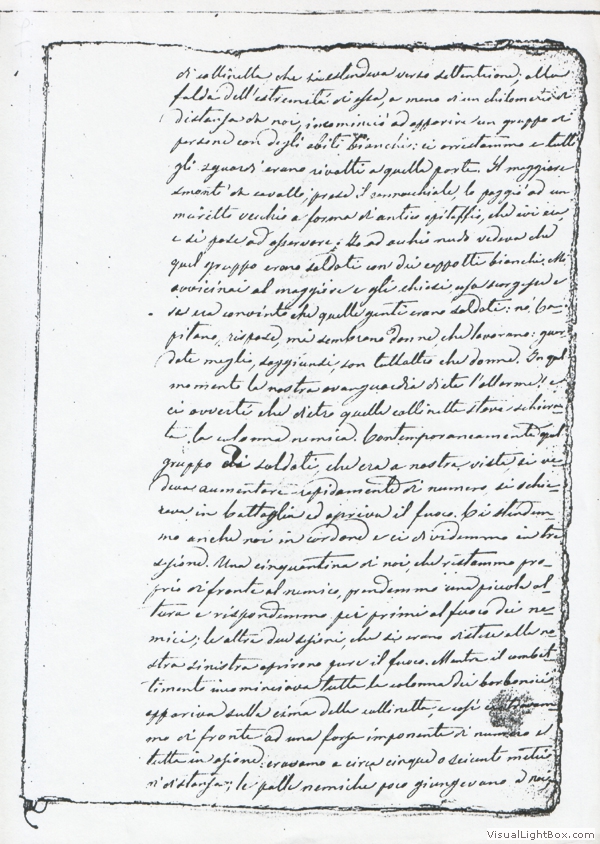 di collinetta che si estendeva verso settentrione, alla
falda dell'estremità di essa, a meno di un chilometro di
distanza da noi, incominciò ad apparire un gruppo di
persone con degli abiti bianchi: ci arrestammo e tutti
gli sguardi erano rivolti a quella parte. Il maggiore
smontò da cavallo, prese il cannocchiale lo poggiò ad un
muretto vecchio a forma di antico epitaffio, che ivi era
e si pose ad osservare; Io ad occhio nudo vedeva che
quel gruppo erano soldati con dei cappotti bianchi. Mi
avvicinai al maggiore e gli chiesi cosa scorgesse e
se era convinto che quelle genti erano soldati: no, Ca-
pitano, rispose, mi sembrano donne che lavorano: guar-
date meglio, soggiunsi, son tutt'altro che donne. In quel
momento la nostra avanguardia diete l'allarme! e
ci avvertì che dietro quelle collinette stava schiera-
ta la colonna nemica. Contemporaneamente quel
gruppo di soldati, che era a nostra vista, si ve-
deva aumentare rapidamente di numero, si schie-
rava in battaglia ed apriva il fuoco. Ci stendem-
mo anche noi in cordone e ci dividemmo in tre
sezione. Una cinquantina di noi, che ristammo pro-
prio di fronte al nemico, prendemmo una piccola al-
tura e rispondemmo pei primi al fuoco dei ne-
mici; le altre due sezioni, che si erano distese alla no-
stra sinistra aprirono pure il fuoco. Mentre il combat-
timento incominciava tutta la colonna dei borbonici
appariva sulla cima della collinetta, e così ci trovam-
mo di fronte ad una forza imponente di numero e
tutta in azione: eravamo a circa cinque o seicento metri
di distanza; le palle nemiche poco giungevano a noi,
VisualLightBox.com